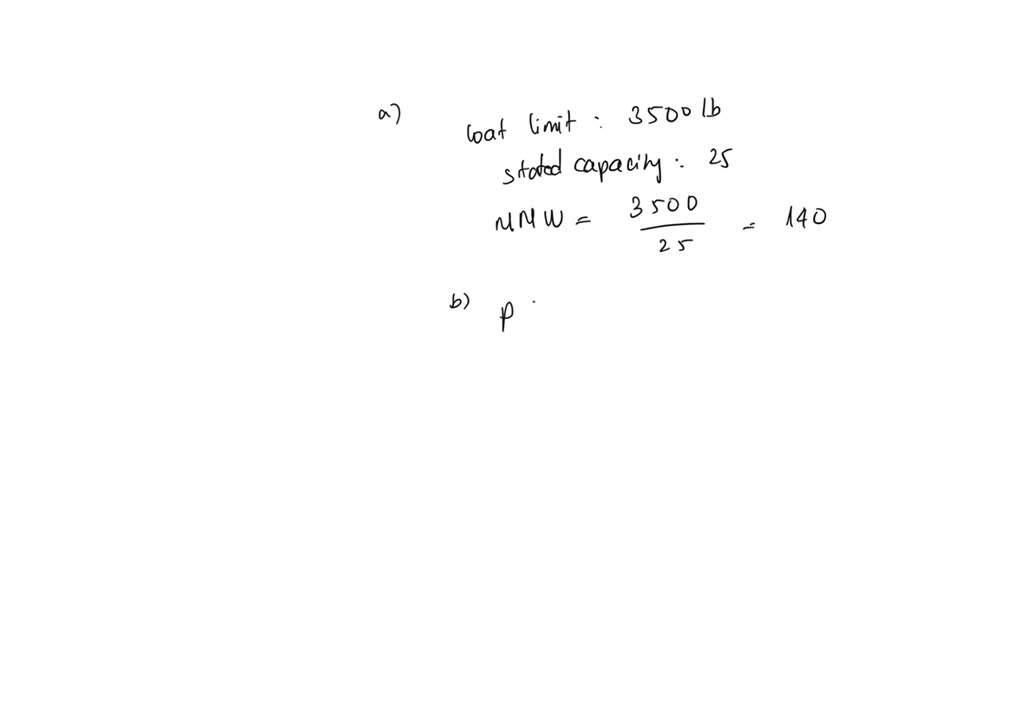 a)
loat limit : 3500 lb
stated capacity : 25
MMW = 3500 / 25 = 140
b) p